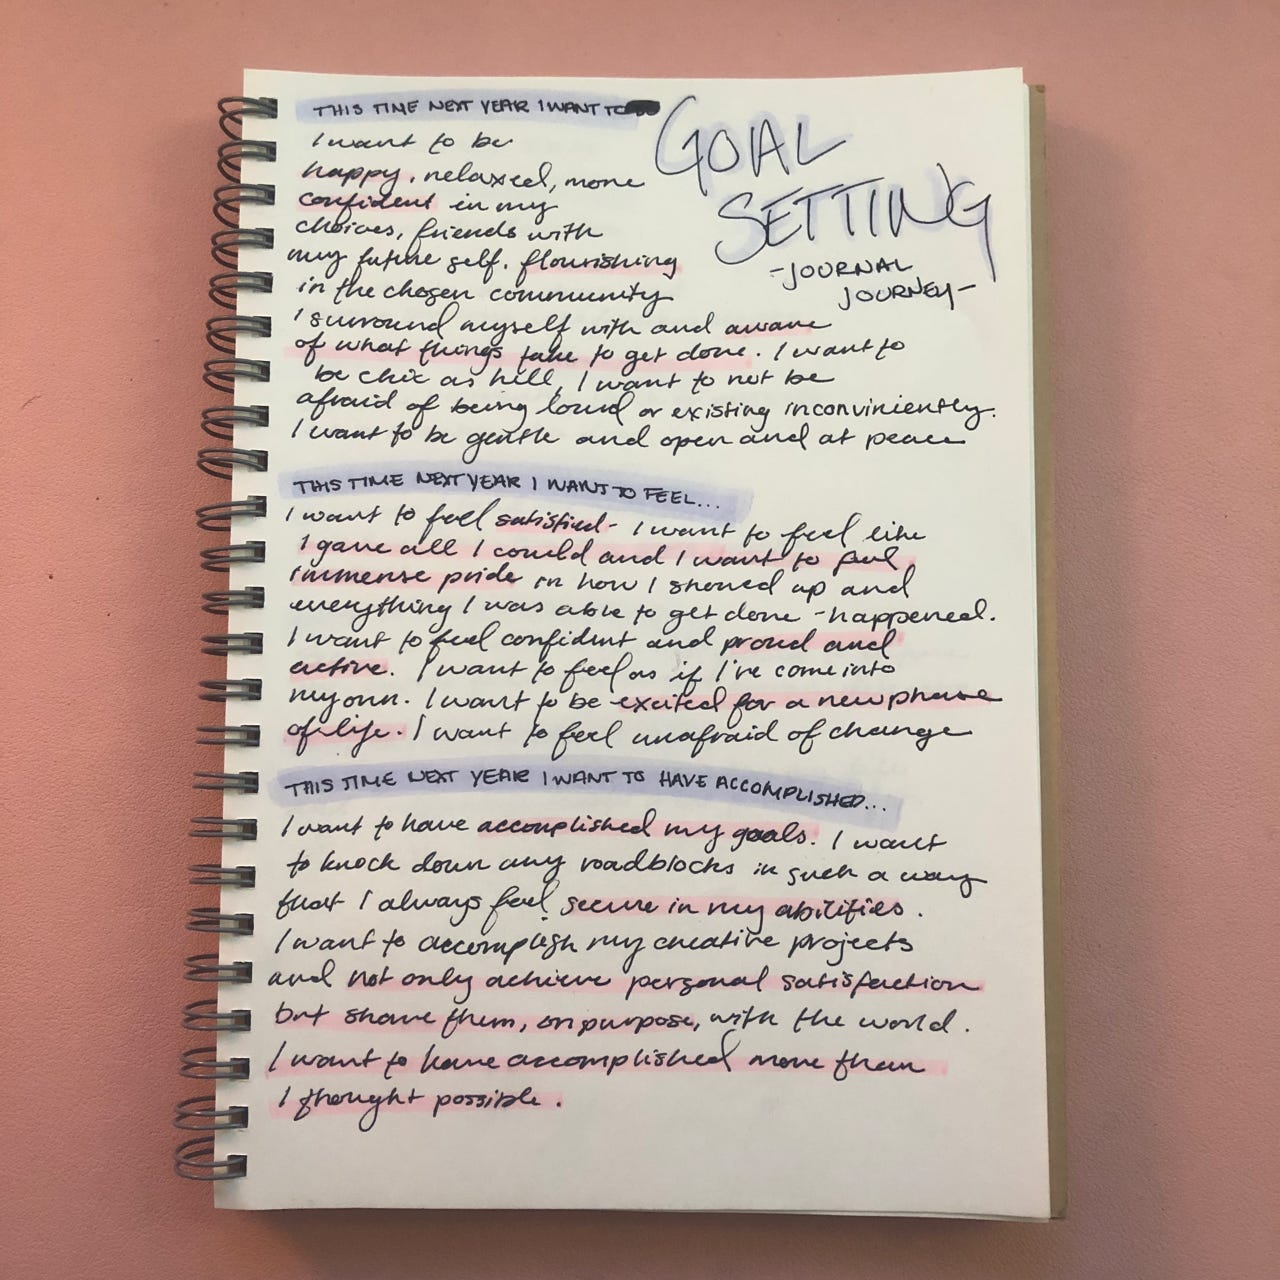 THIS TIME NEXT YEAR I WANT TO
GOAL
SETTING
-JOURNAL
JOURNEY-
I want to be
happy, relaxed, more
confident in my
choices, friends with
my future self, flourishing
in the chosen community
I surround myself with and aware
of what things take to get done. I want to
be chic as hell, I want to not be
afraid of being loud or existing inconviniently.
I want to be gentle and open and at peace
THIS TIME NEXT YEAR I WANT TO FEEL...
I want to feel satisfied - I want to feel like
I gave all I could and I want to feel
immense pride in how I showed up and
everything I was able to get done - happened.
I want to feel confident and proud and
active. I want to feel as if I've come into
my own. I want to be excited for a new phase
of life. I want to feel unafraid of change
THIS TIME NEXT YEAR I WANT TO HAVE ACCOMPLISHED...
I want to have accomplished my goals. I want
to knock down any roadblocks in such a way
that I always feel secure in my abilities.
I want to accomplish my creative projects
and not only achieve personal satisfaction
but share them, on purpose, with the world.
I want to have accomplished more than
I thought possible.